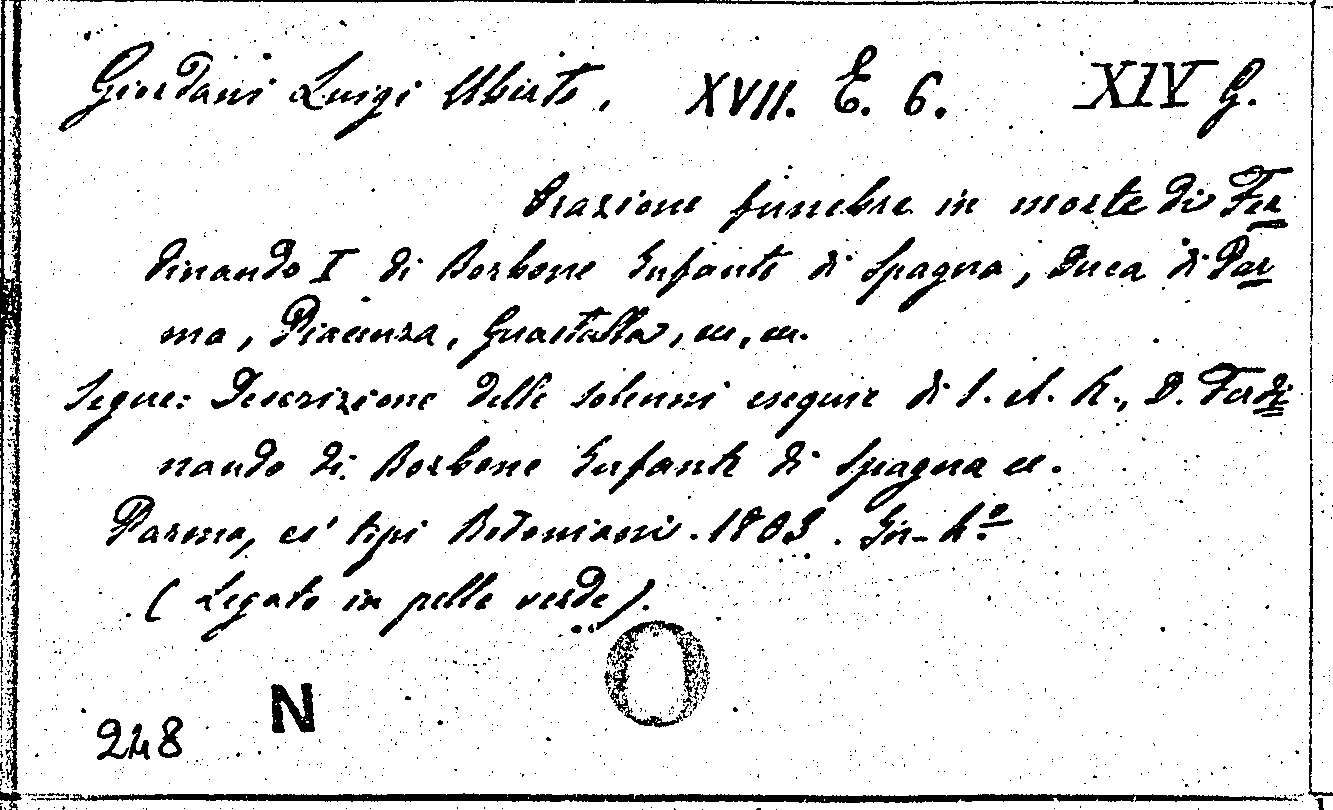 Giordani Luigi Uberto. XVII. E. 6. XIV G.
Orazione funebre in morte di Fer
dinando I di Borbone Infante di Spagna, Duca di Par
ma, Piacenza, Guastalla, ec, ec.
Segue: Descrizione delle solenni esequie di S. A. R., D. Ferdi
nando di Borbone Infante di Spagna ec.
Parma, co' tipi Bodoniani. 1803. In-4º
(Legato in pelle verde).
N O
248